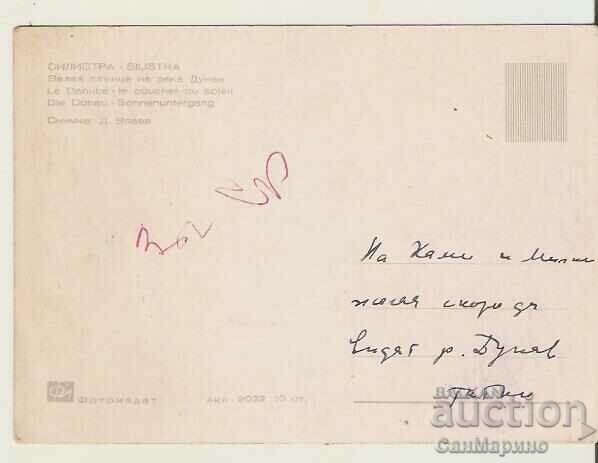 СИЛИСТРА - SILISTRA
Залез слънце на река Дунав
Le Danube - le coucher du soleil
Die Donau - Sonnenuntergang
Снимка Д. Влаев
На Ками и
желая скоро да
видят р. Дунав
Фотоиздат
Акл. 2039 10 ст.
BALKAN
auction
СанМарино